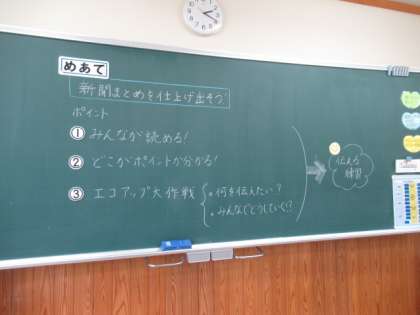 めあて
新聞まとめを仕上げ出そう!
ポイント
① みんなが読める!
② どこがポイントか分かる!
③ エコアップ大作戦
・何を伝えたい?
・みんなでどうしていく!?
伝える
練習